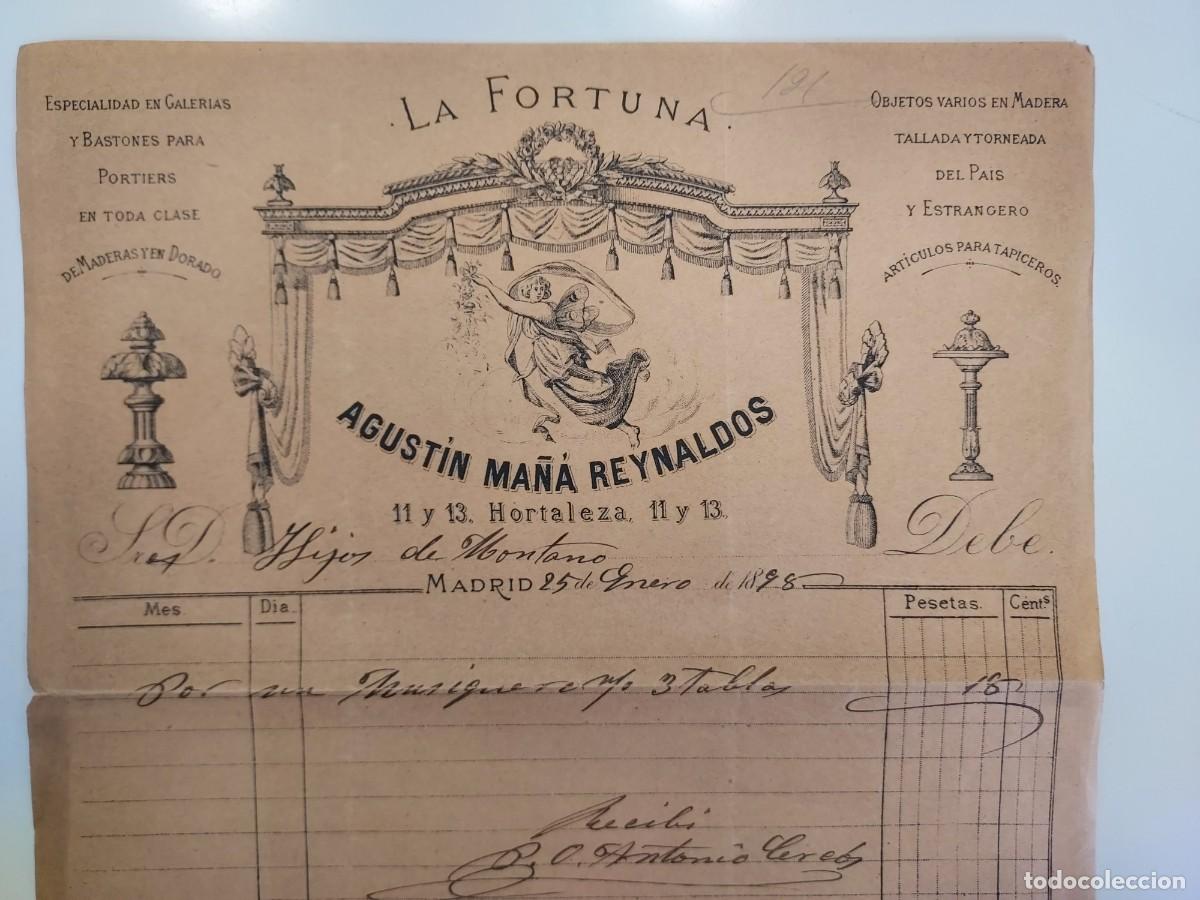 LA FORTUNA
121
ESPECIALIDAD EN GALERIAS
Y BASTONES PARA
PORTIERS
EN TODA CLASE
DE MADERAS Y EN DORADO
OBJETOS VARIOS EN MADERA
TALLADA Y TORNEADA
DEL PAIS
Y ESTRANGERO
ARTÍCULOS PARA TAPICEROS.
AGUSTÍN MAÑÁ REYNALDOS
11 y 13, Hortaleza, 11 y 13.
Sres D. Hijos de Montano Debe.
MADRID 25 de Enero de 1898
Mes. Dia. Pesetas. Cénts
Por un Musiquero 3 tablas 18
Recibi
P. O. Antonio
todocoleccion